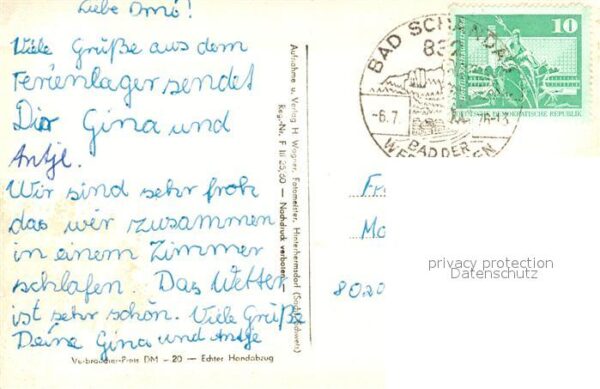 Liebe Omi!
Viele Grüße aus dem
Ferienlager sendet
Dir Gina und
Antje.
Wir sind sehr froh
das wir zusammen
in einem Zimmer
schlafen. Das Wetter
ist sehr schön. Viele Grüße
Deine Gina und Antje
Verbraucher-Preis DM -20 — Echter Handabzug
Aufnahme u. Verlag H. Wagner, Fotomeister, Hinterhermsdorf (Sächs. Schweiz)
Reg.-Nr. F III 35/60 — Nachdruck verboten
BAD SCHANDAU
832
-6.7
BAD DER
10
DEUTSCHE DEMOKRATISCHE REPUBLIK
8020
privacy protection
Datenschutz